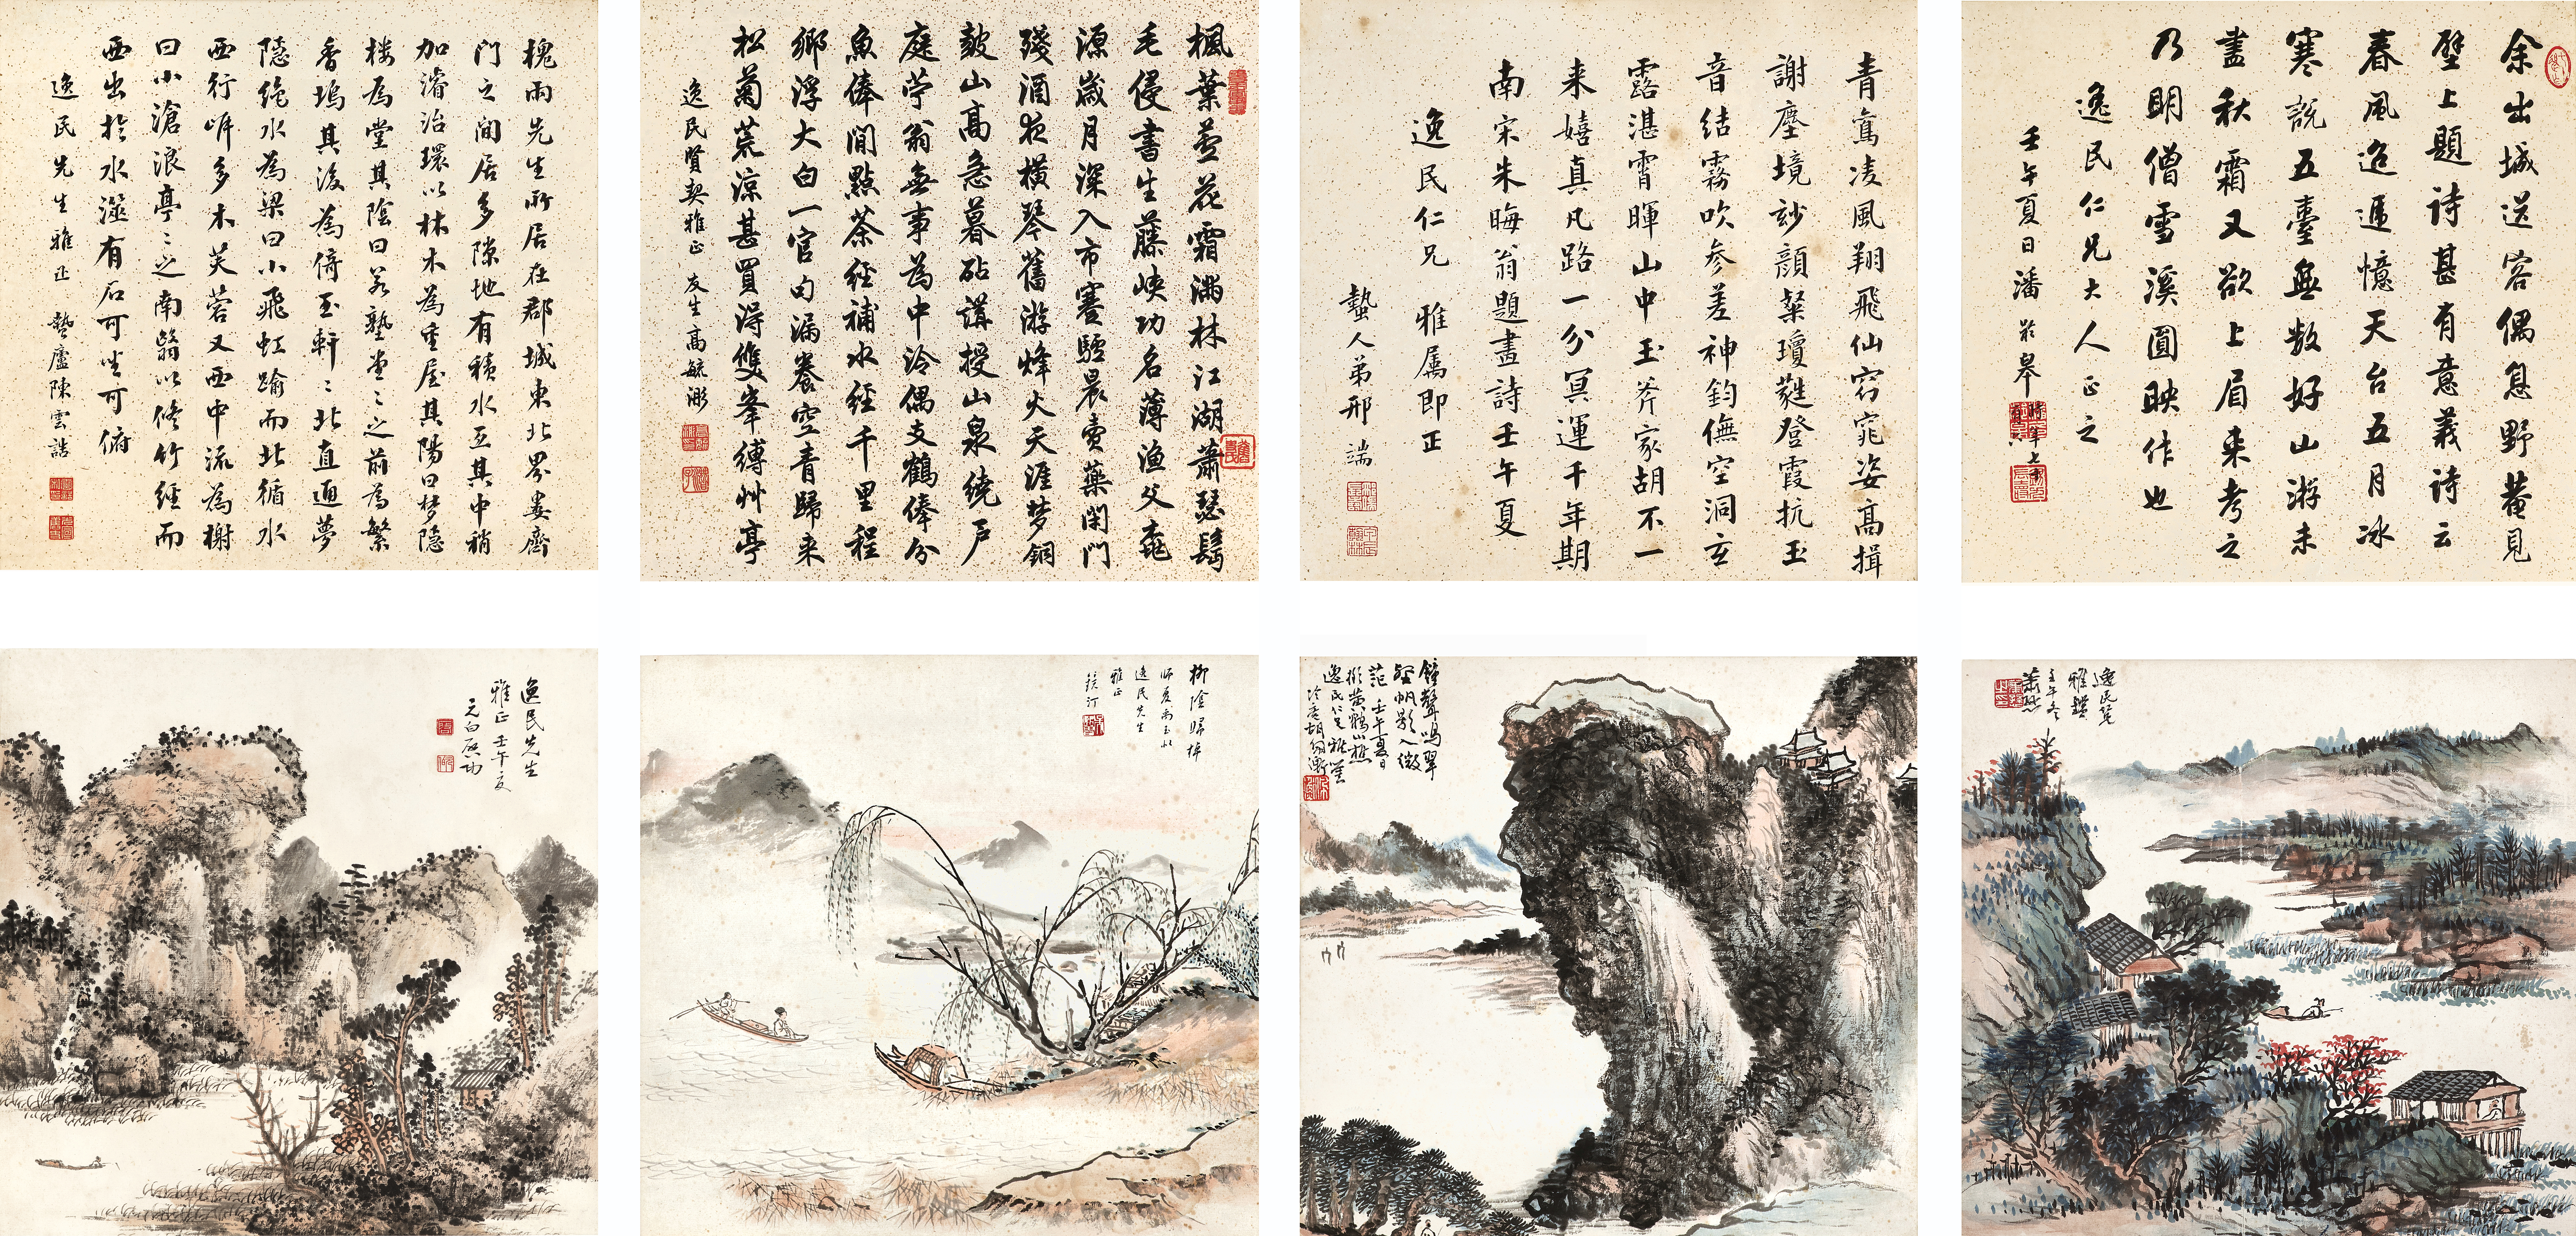 槐雨先生所居在郡城東北界婁齊
門之間居多隙地有積水亙其中稍
加濬治環以林木為重屋其陽曰梦隐
樓為堂其陰曰若墅堂〻之前為繁
香塢其後為倚玉軒〻北直通夢
隱絶水為梁曰小飛虹踰而北循水
西行岸多木芙蓉又西中流為榭
曰小滄浪亭〻之南翳以修竹經而
西出於水澨有石可坐可俯
逸民先生雅正 蟄廬陳雲誥
楓葉蘆花霜滿林江湖蕭瑟鬢
毛侵書生藤峽功名薄漁父桃
源歲月深入市蹇驢晨賣藥閉門
殘酒夜橫琴舊游烽火天涯梦銅
鼓山高急暮砧講授山泉繞戶
庭竚翁無事為中泠偶支鶴俸分
魚俸閒點茶經補水經千里程
鄉浮大白一官句漏養空青歸来
松菊荒涼甚買得雙峯縛艸亭
逸民賢契雅正 友生高毓浵
青鸞凌風翔飛仙窈窕姿高揖
謝塵境妙顔粲瓊蕤登霞抗玉
音結霧吹参差神鈞儛空洞玄
露湛霄暉山中玉斧家胡不一
来嬉真凡路一分冥運千年期
南宋朱晦翁題畫詩壬午夏
逸民仁兄 雅屬即正
蟄人弟邢端
余出城送客偶息野菴見
壁上題詩甚有意義詩云
春風迢遞憶天台五月冰
寒說五臺無數好山游未
盡秋霜又欲上眉来考之
乃明僧雪溪圓映作也
逸民仁兄大人正之
壬午夏日潘齡皋時年七十有六
逸民先生
雅正 壬午夏
元白启功
柳陰歸棹
逸民先生
雅正
鏡汀
鐘聲鳴翠
壁帆影入微
茫 壬午夏日
擬黄鶴山樵
逸民仁兄雅鑒
冷庵胡佩衡
逸民先生
雅鑒
壬午冬
蕭愻